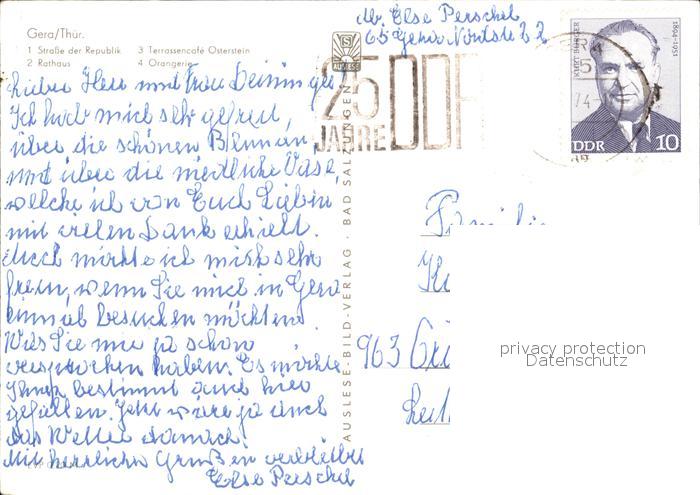 Gera/Thür.
1 Straße der Republik 3 Terrassencafé Osterstein
2 Rathaus 4 Orangerie
Lieber Herr und Frau Deininger
Ich hab mich sehr gefreut,
über die schönen Blumen
und über die niedliche Vase,
welche ich von Euch Lieben
mit vielen Dank erhielt.
Auch möchte ich mich sehr
freun, wenn Sie mich in Gera
einmal besuchen möchten.
Wies Sie mir ja schon
versprochen haben. Es möchte
Ihnen bestimmt auch hier
gefallen. Jetzt wäre ja auch
das Wetter danach.
Mit herzlichen Grüßen verbleibt
Else Perschel
AUSLESE
AUSLESE-BILD-VERLAG · BAD SALZUNGEN
Ab. Else Perschel
65 Gera,
25
JAHRE DDR
KURT BÜRGER
1894-1951
DDR 10
963
privacy protection
Datenschutz